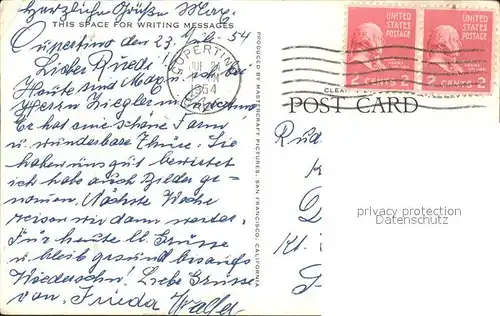 herzliche Grüße Max.
THIS SPACE FOR WRITING MESSAGES
Cupertino den 23. 54
Lieber Ruedi!
Heute sind Max ich bei
Herrn Ziegler in
Er hat eine schöne Farm
u. wunderbare Thiere. Sie
haben uns gut bewirtet
ich habe auch Bilder ge-
nommen. Nächste Woche
reisen wir dann weiter.
Für heute ll. Grüsse
u. bleib gesund
Wiedersehn! Liebe Grüsse
von Frieda
PRODUCED BY MASTERCRAFT PICTURES, SAN FRANCISCO, CALIFORNIA
CUPERTINO
JUL 24
1954
UNITED STATES POSTAGE
2 CENTS 2
UNITED STATES POSTAGE
2 CENTS 2
POST CARD
privacy protection